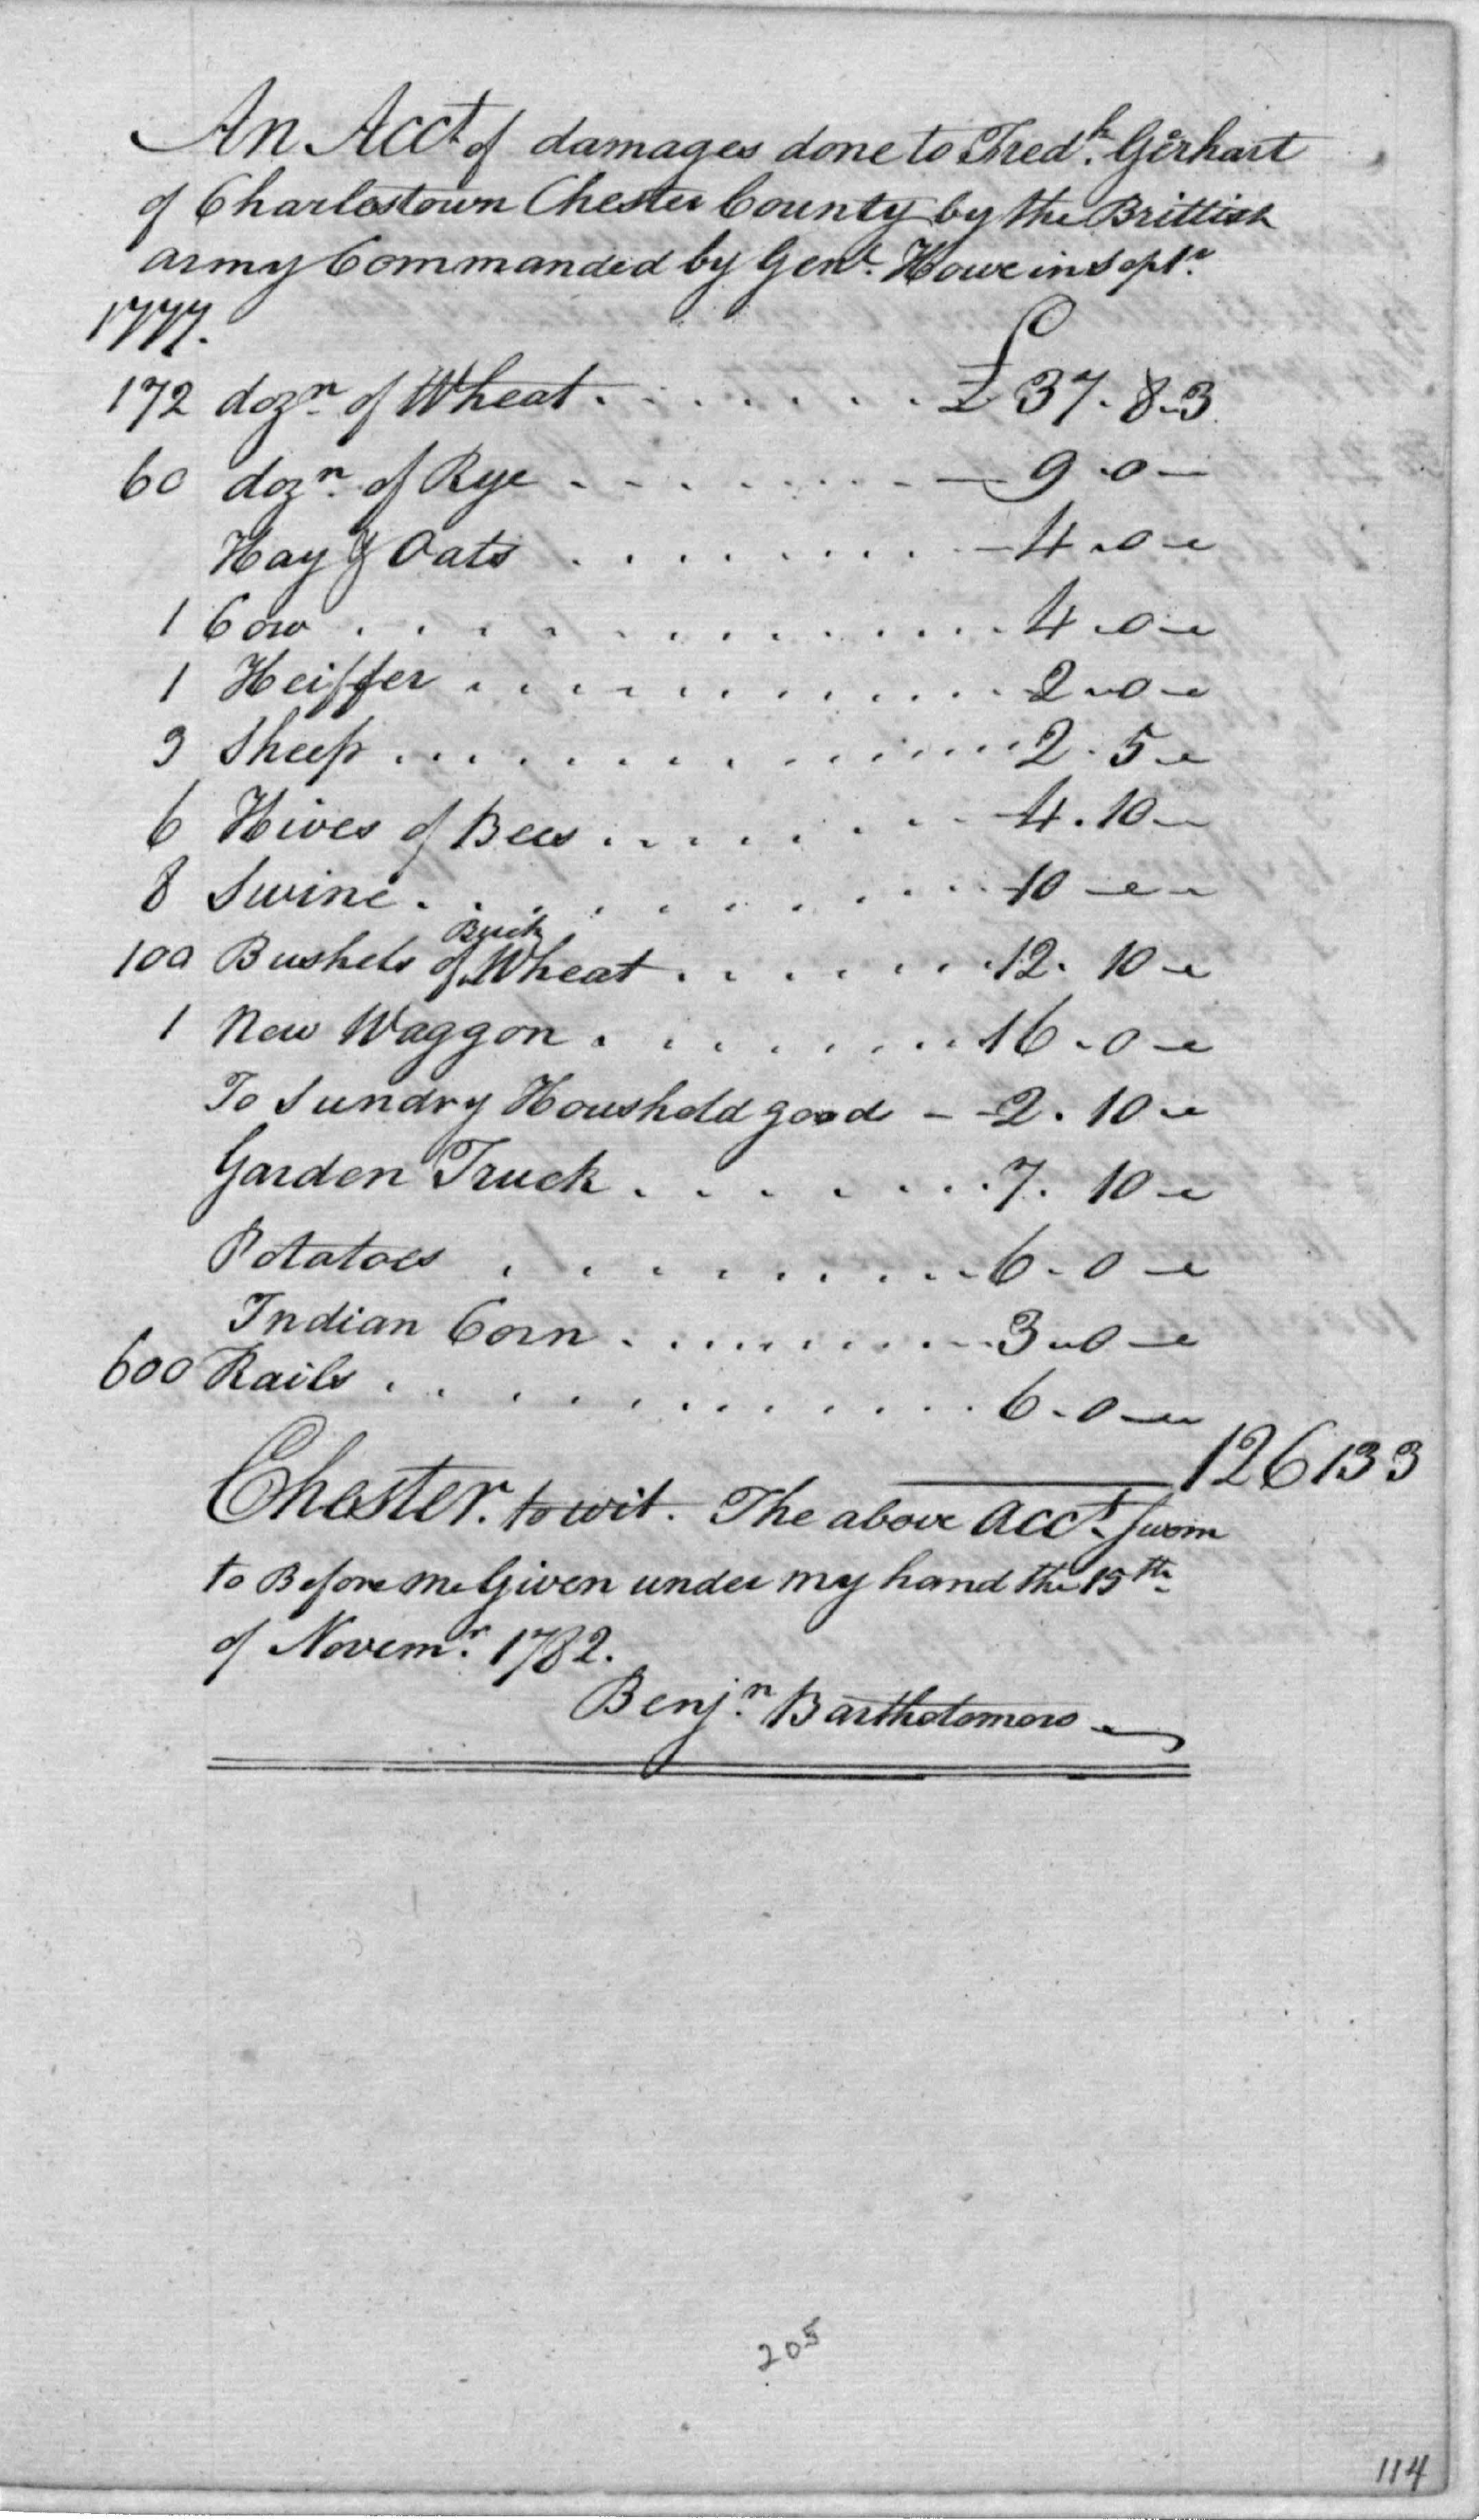 An Acct of damages done to Fredk. Gerhart
of Charlestown Chester County by the Brittish
army Commanded by Genl. Howe in Septr.
1777.
172 dozn. of Wheat . . . . . . . £ 37. 8. 3
60 dozn. of Rye - - - - - - - 9 . 0 -
Hay & Oats . . . . . . . . . 4 . 0 -
1 Cow . . . . . . . . . . . . 4 . 0 -
1 Heiffer . . . . . . . . . . . 2 . 0 -
3 Sheep . . . . . . . . . . . . 2 . 5 -
6 Hives of Bees . . . . . . . . 4 . 10 -
8 Swine . . . . . . . . . . . 10 - -
100 Bushels of Buck Wheat . . . . . . . 12 . 10 -
1 New Waggon . . . . . . . . 16 . 0 -
To Sundry Houshold goods - - 2 . 10 -
Garden Truck . . . . . . . . 7 . 10 -
Potatoes . . . . . . . . . . 6 . 0 -
Indian Corn . . . . . . . . . 3 . 0 -
600 Rails . . . . . . . . . . . 6 . 0 -
126 13 3
Chester. to wit. The above Acct. Sworn
to Before me Given under my hand the 15th
of Novemr. 1782.
Benjn. Bartholomew
205
114